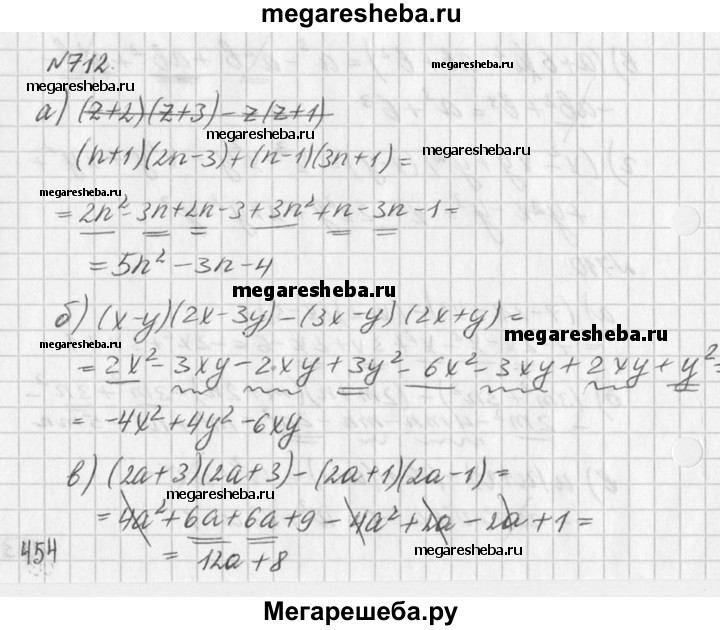 megaresheba.ru
№712.
megaresheba.ru
megaresheba.ru
а) (z+2)(z+3) – z(z+1)
megaresheba.ru
(n+1)(2n–3)+(n–1)(3n+1)=
megaresheba.ru
megaresheba.ru
= 2n² – 3n + 2n – 3 + 3n² + n – 3n – 1 =
= 5n² – 3n – 4
megaresheba.ru
б) (x–y)(2x–3y) – (3x–y)(2x+y) =
megaresheba.ru
= 2x² – 3xy – 2xy + 3y² – 6x² – 3xy + 2xy + y² =
= –4x² + 4y² – 6xy
в) (2a+3)(2a+3) – (2a+1)(2a–1) =
megaresheba.ru
= 4a² + 6a + 6a + 9 – 4a² + 2a – 2a + 1 =
454
= 12a + 8
megaresheba.ru
Мегарешеба.ру